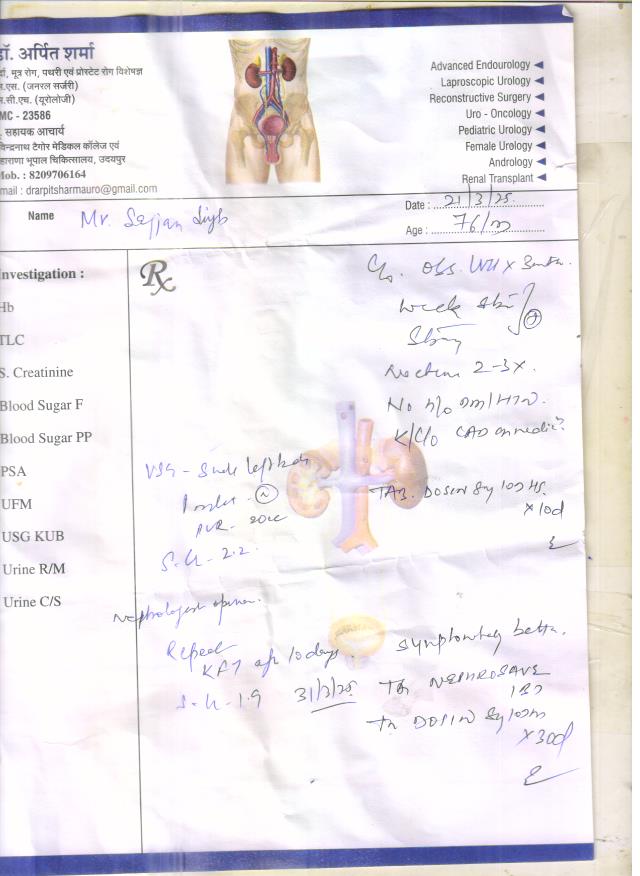 डॉ. अर्पित शर्मा
मूत्र रोग, पथरी एवं प्रोस्टेट रोग विशेषज्ञ
एस. (जनरल सर्जरी)
सी.एच. (यूरोलोजी)
MC - 23586
सहायक आचार्य
विन्द्रनाथ टैगोर मेडिकल कॉलेज एवं
हाराणा भूपाल चिकित्सालय, उदयपुर
Mob. : 8209706164
mail : drarpitsharmauro@gmail.com
Advanced Endourology
Laproscopic Urology
Reconstructive Surgery
Uro - Oncology
Pediatric Urology
Female Urology
Andrology
Renal Transplant
Name Mr. Sajjan Singh
Date : 21/3/25
Age : 76/m
Investigation :
Hb
TLC
S. Creatinine
Blood Sugar F
Blood Sugar PP
PSA
UFM
USG KUB
Urine R/M
Urine C/S
Rx
C/o. Obs.
week
Nocturia 2-3x.
No h/o DM/HTN.
K/C/O CAD on
TAB. DOSIN 8mg 10 HS.
x10d
USG - left
PVR - 20cc
S.Cr - 2.2.
Nephrologist opinion.
Repeat
KFT after 10 days.
S.Cr - 1.9
31/3/25
Symptomatically better.
Tab NEPHROSAVE
Tab DOSIN 8mg
x30d